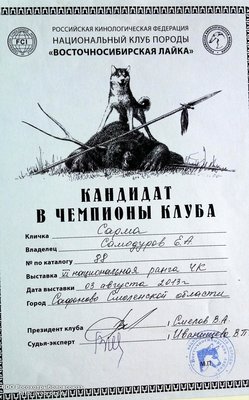 РОССИЙСКАЯ КИНОЛОГИЧЕСКАЯ ФЕДЕРАЦИЯ
НАЦИОНАЛЬНЫЙ КЛУБ ПОРОДЫ
«ВОСТОЧНОСИБИРСКАЯ ЛАЙКА»
FCI
КАНДИДАТ
В ЧЕМПИОНЫ КЛУБА
Кличка Сарма
Владелец Самодуров Е.А
№ по каталогу 88
Выставка VI национальная ранга ЧК
Дата выставки 03 августа 2013г
Город Сафоново Смоленской области
Президент клуба Смелов В.А.
Судья-эксперт Иванищева В.П
М.П.